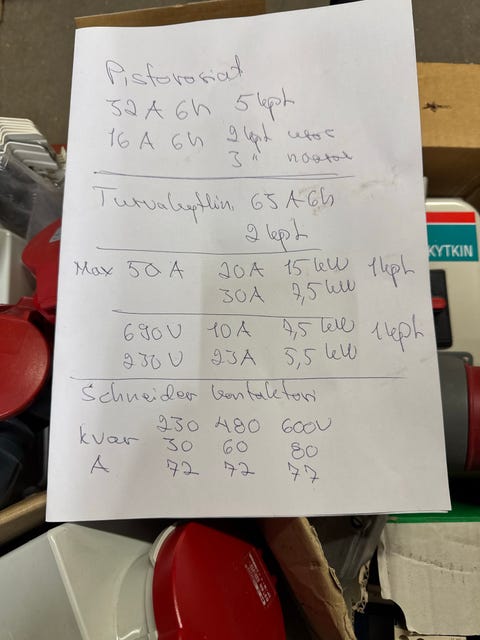 Pistorasiat
32A 6h 5 kpl
16A 6h 2 kpl uros
3 " naaras
Turvakytkin 63A 6h
2 kpl
KYTKIN
Max 50A 20A 15 kW 1kpl
30A 7,5 kW
690V 10A 7,5 kW 1kpl
230V 23A 5,5 kW
Schneider kontaktori
230 480 600V
kvar 30 60 80
A 72 72 77